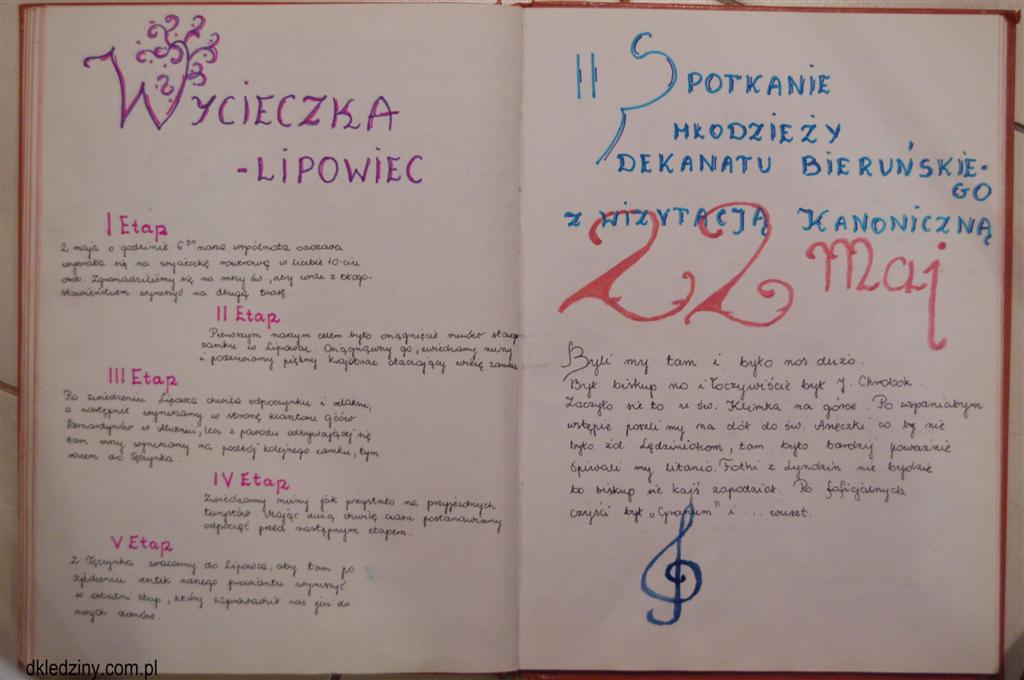 WYCIECZKA
-LIPOWIEC
I Etap
2 maja o godzinie 6³⁰ nasza wspólnota oazowa
wybrała się na wycieczkę rowerową w liczbie 10-ciu
osób. Zgromadziliśmy się na mszy św., aby wraz z błogo-
sławieństwem wyruszyć na długą trasę.
II Etap
Pierwszym naszym celem było osiągnięcie murów starego
zamku w Lipowcu. Osiągnęliśmy go, zwiedzamy ruiny
i podziwiamy piękny krajobraz otaczający wieżę zamku
III Etap
Po zwiedzeniu Lipowca chwila odpoczynku i relaksu,
a następnie wyruszamy w stronę klasztoru ojców
Bernardynów w Alwerni, lecz z powodu odbywającej się
tam mszy wyruszamy na podbój kolejnego zamku, tym
razem do Tęczynka.
IV Etap
Zwiedzamy ruiny jak przystało na przyjezdnych
turystów. Mając dużą chwilę czasu postanawiamy
odpocząć przed następnym etapem.
V Etap
Z Tęczynka wracamy do Lipowca, aby tam po
zjedzeniu resztek naszego prowiantu wyruszyć
w ostatni etap, który zaprowadził nas już do
naszych domów.
II SPOTKANIE
MŁODZIEŻY
DEKANATU BIERUŃSKIE-
GO
Z WIZYTACJĄ KANONICZNĄ
22 Maj
Byli my tam i było nos dużo.
Był biskup no i łoczywiście był J. Chrobok.
Zaczyło sie to u św. Klimka na górce. Po wspaniałym
wstępie poszli my na dół do św. Aneczki co by nie
było żol Lędziniokom, tam było bardzij poważnie
śpiwali my litanio. Fotki z Lyndzin nie bydzie
bo biskup sie kajś zapodzioł. Po łoficjalnych
czyści był „Cyranum" i ... couset.
dkledziny.com.pl